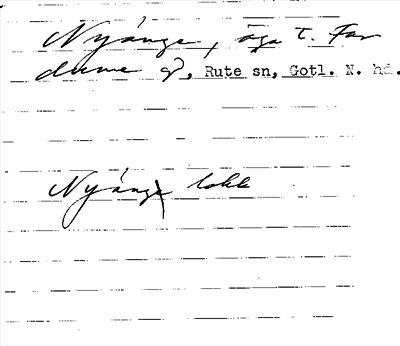 Nyänge, äga t. Far
dume g, Rute sn, Gotl. N. hd.
Nyänge lokk